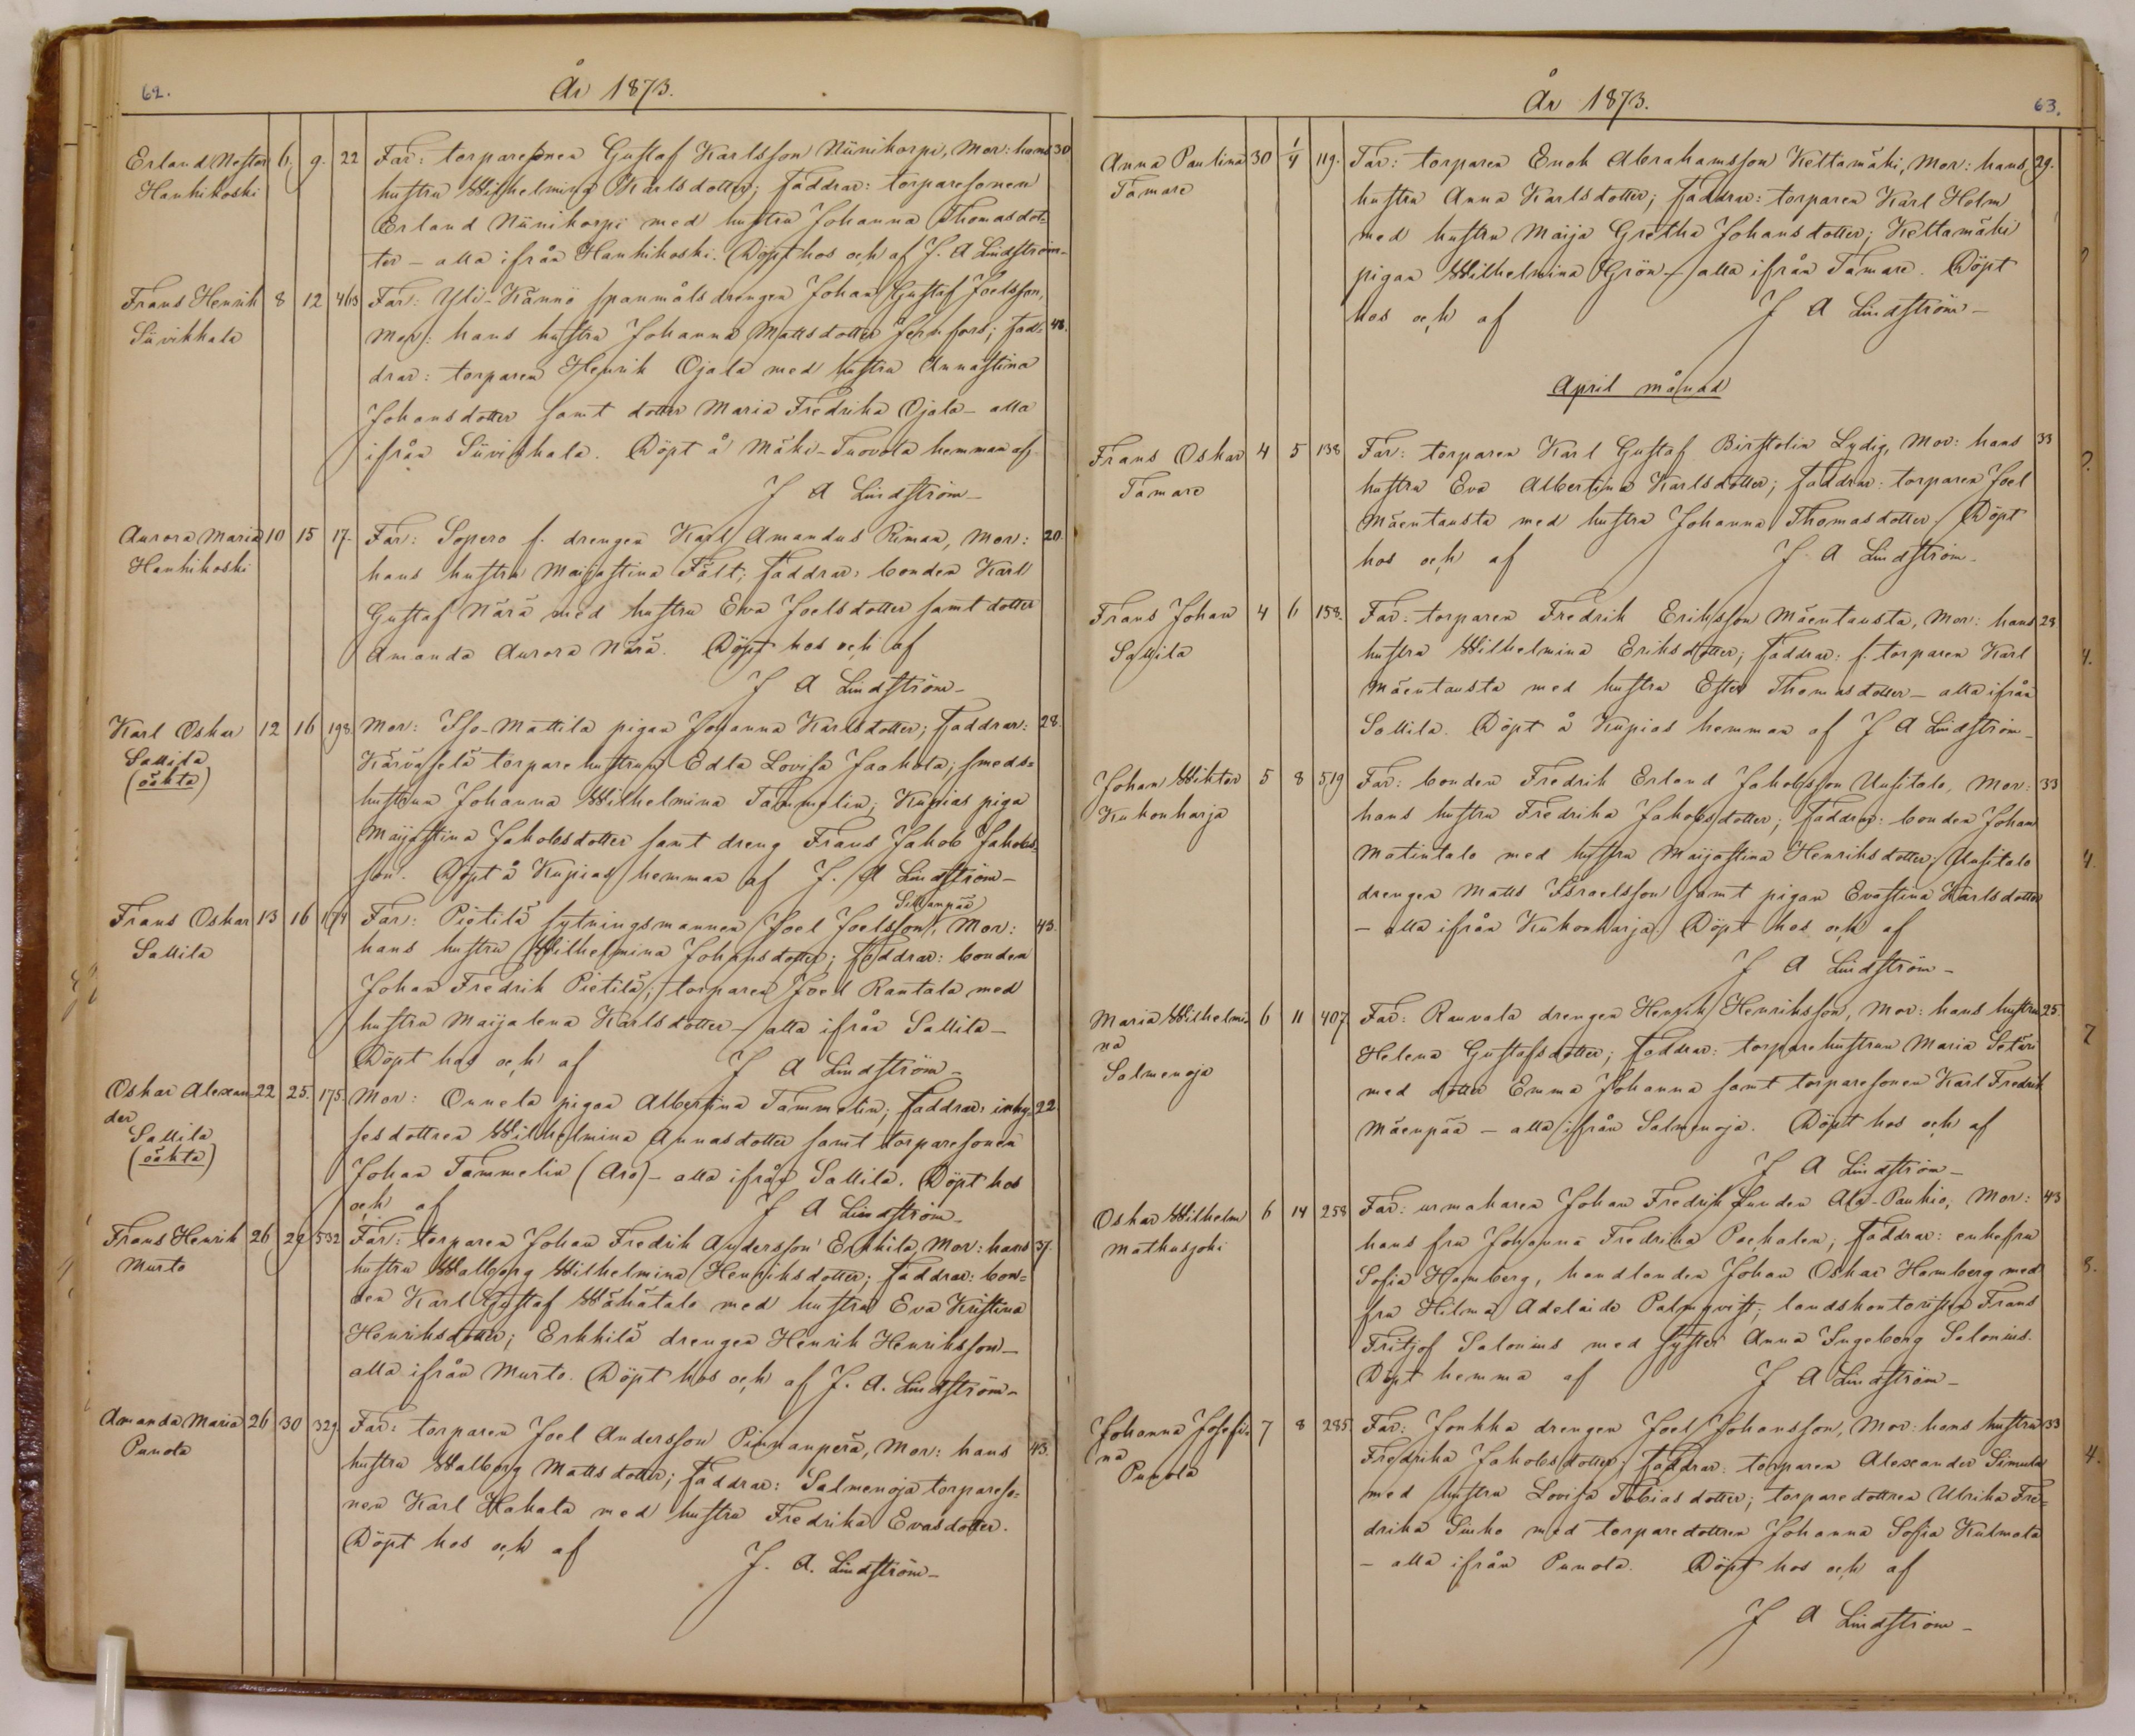 62.
År 1873.
Erland Nestor 6. 9. 22 Far: torparesonen Gustaf Karlsson Niinikorpi, Mor: hans 30
Hanhikoski hustru Wilhelmina Karlsdotter; faddrar: torparesonen
Erland Niinikorpi med hustru Johanna Thomasdot-
ter – alla ifrån Hanhikoski. Döpt hos och af J. A Lindström –
Frans Henrik 8 12 463 Far: Yli-Kännö spanmålsdrengen Johan Gustaf Joelsson,
Siivikkala Mor: hans hustru Johanna Mattsdotter Jernfors; fad- 48.
drar: torparen Henrik Ojala med hustru Annastina
Johansdotter samt dotter Maria Fredrika Ojala – alla
ifrån Siivikkala. Döpt å Mäki-Tuovola hemman af
J A Lindström –
Aurora Maria 10 15 17. Far: Sopero f. drengen Karl Amandus Riman, Mor: 20.
Hanhikoski hans hustru Maijastina Fält; faddrar: bonden Karl
Gustaf Närä med hustru Eva Joelsdotter samt dotter
Amanda Aurora Närä. Döpt hos och af
J A Lindström –
Karl Oskar 12 16 198. Mor: Iso-Mattila pigan Johanna Karlsdotter; faddrar: 28.
Sallila Kärväselä torparehustrun Edla Lovisa Jaakola; smeds-
(oäkta) hustrun Johanna Wilhelmina Tammelin; Kupias piga
Maijastina Jakobsdotter samt dreng Frans Jakob Jakobs-
son. Döpt å Kupias hemman af J. A Lindström –
Sillanpää
Frans Oskar 13 16 174 Far: Pietilä sytningsmannen Joel Joelsson, Mor: 43.
Sallila hans hustru Wilhelmina Johansdotter; faddrar: bonden
Johan Fredrik Pietilä; torparen Joel Rantala med
hustru Maijalena Karlsdotter – alla ifrån Sallila –
Döpt hos och af J A Lindström –
Oskar Alexan- 22 25. 175. Mor: Onnela pigan Albertina Tammelin; faddrar: inhy- 22.
der sesdottren Wilhelmina Annasdotter samt torparesonen
Sallila Johan Tammelin (Aro) – alla ifrån Sallila. Döpt hos
(oäkta) och af J A Lindström –
Frans Henrik 26 29 532 Far: torparen Johan Fredrik Andersson Erkkilä, Mor: hans 37.
Murto hustru Walborg Wilhelmina Henriksdotter; faddrar: bon-
den Karl Gustaf Wähätalo med hustru Eva Kristina
Henriksdotter; Erkkilä drengen Henrik Henriksson –
alla ifrån Murto. Döpt hos och af J. A. Lindström –
Amanda Maria 26 30 329. Far: torparen Joel Andersson Pinnanperä, Mor: hans 43.
Punola hustru Walborg Mattsdotter; faddrar: Salmenoja torpareso-
nen Karl Hakala med hustru Fredrika Evasdotter.
Döpt hos och af J. A. Lindström –
År 1873.
63.
Anna Paulina 30 1/4 119. Far: torparen Enok Abrahamsson Keltamäki, Mor: hans 29.
Tamare hustru Anna Karlsdotter; faddrar: torparen Karl Holm
med hustru Maija Gretha Johansdotter; Keltamäki
pigan Wilhelmina Grön – alla ifrån Tamare. Döpt
hos och af J A Lindström –
April månad
Frans Oskar 4 5 138 Far: torparen Karl Gustaf Birstolin Lydig, Mor: hans 33
Tamare hustru Eva Albertina Karlsdotter; faddrar: torparen Joel
Mäentausta med hustru Johanna Thomasdotter. Döpt
hos och af J. A Lindström –
Frans Johan 4 6 158. Far: torparen Fredrik Eriksson Mäentausta, Mor: hans 28
Sallila hustru Wilhelmina Eriksdotter; faddrar: f. torparen Karl
Mäentausta med hustru Ester Thomasdotter – alla ifrån
Sallila. Döpt å Kupias hemman af J A Lindström –
Johan Wiktor 5 8 519 Far: bonden Fredrik Erland Jakobsson Uusitalo, Mor: 33
Kukonharja hans hustru Fredrika Jakobsdotter; faddrar: bonden Johan
Matintalo med hustru Maijastina Henriksdotter; Uusitalo
drengen Matts Israelsson samt pigan Evastina Karlsdotter
– alla ifrån Kukonharja. Döpt hos och af
J A Lindström –
Maria Wilhelmi- 6 11 407 Far: Rauvala drengen Henrik Henriksson, Mor: hans hustru 25.
na Helena Gustafsdotter; faddrar: torparehustrun Maria Setäri
Salmenoja med dotter Emma Johanna samt torparesonen Karl Fredrik
Mäenpää – alla ifrån Salmenoja. Döpt hos och af
J A Lindström –
Oskar Wilhelm 6 14 258 Far: urmakaren Johan Fredrik Lunden Ala-Pankio, Mor: 43
Mathusjoki hans fru Johanna Fredrika Pochalen; faddrar: enkefru
Sofia Hamberg, handlanden Johan Oskar Hamberg med
fru Hilma Adelaide Palmqvist; landskontoristen Frans
Fritjof Salonius med syster Anna Ingeborg Salonius.
Döpt hemma af J A Lindström –
Johanna Josefi- 7 8 285. Far: Jonkka drengen Joel Johansson, Mor: hans hustru 33
na Fredrika Jakobsdotter; faddrar: torparen Alexander Simula
Punola med hustru Lovisa Tobiasdotter; torparedottren Ulrika Fre-
drika Sinko med torparedottren Johanna Sofia Kulmala
– alla ifrån Punola. Döpt hos och af
J A Lindström –